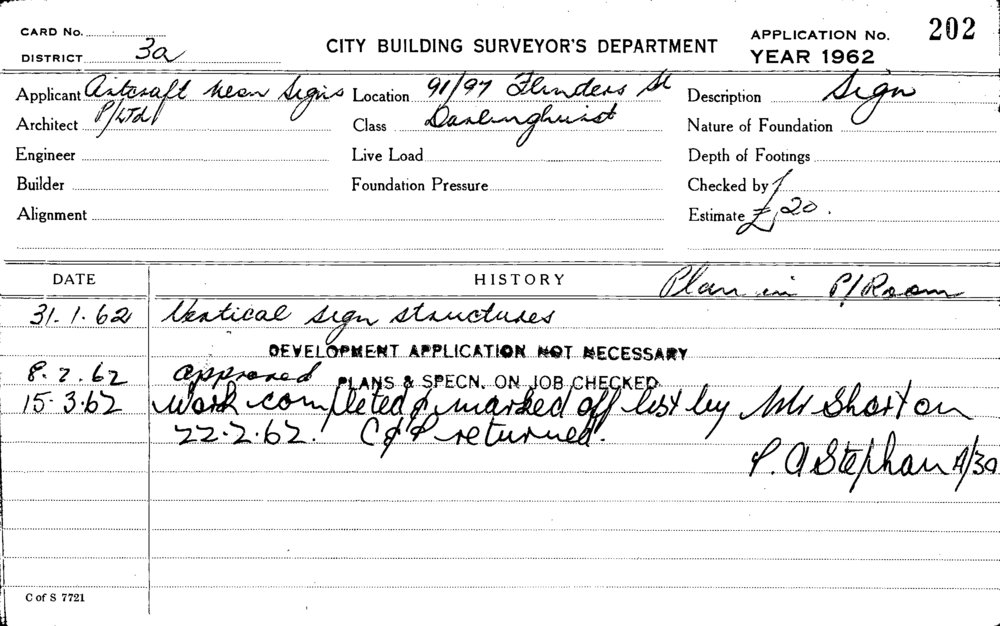 CARD No.
DISTRICT 3a
CITY BUILDING SURVEYOR'S DEPARTMENT
APPLICATION No. 202
YEAR 1962
Applicant Artcraft Neon Signs P/Ltd
Location 91/97 Flinders St
Description Sign
Architect
Class Darlinghurst
Nature of Foundation
Engineer
Live Load
Depth of Footings
Builder
Foundation Pressure
Checked by
Alignment
Estimate £20.
DATE
HISTORY
Plan in P/Room
31.1.62 Vertical sign structures
DEVELOPMENT APPLICATION NOT NECESSARY
8.2.62 approved
PLANS & SPECN. ON JOB CHECKED
15.3.62 Work completed & marked off list by Mr Short on
22.2.62. C&P returned.
P. A Stephan A/30
C of S 7721